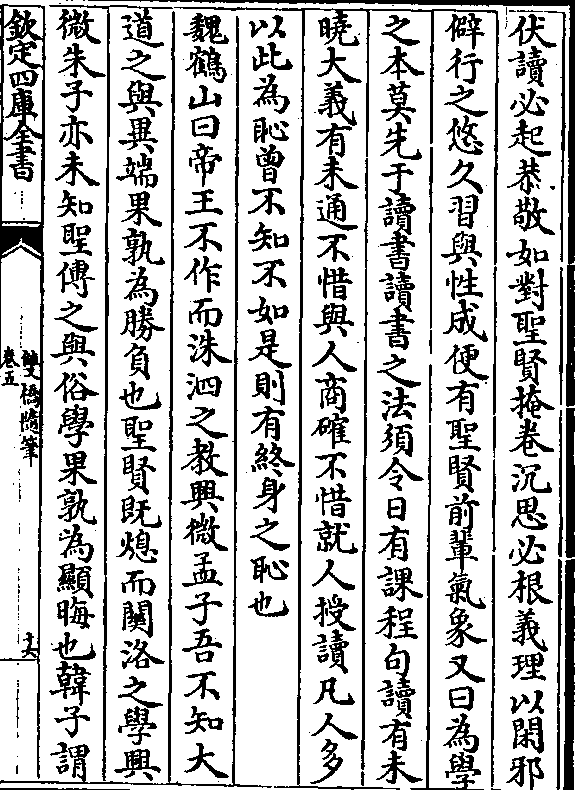 伏讀必起恭敬如對聖賢掩卷沉思必根義理以閑邪
僻行之悠久習與性成便有聖賢前輩氣象又曰為學
之本莫先于讀書讀書之法須令日有課程句讀有未
曉大義有未通不惜與人商確不惜就人授讀凡人多
以此為恥曾不知不如是則有終身之恥也
魏鶴山曰帝王不作而洙泗之教興微孟子吾不知大
道之與異端果孰為勝負也聖賢既熄而關洛之學興
微朱子亦未知聖傳之與俗學果孰為顯晦也韓子謂
欽定四庫全書
雙橋隨筆
卷五
十六